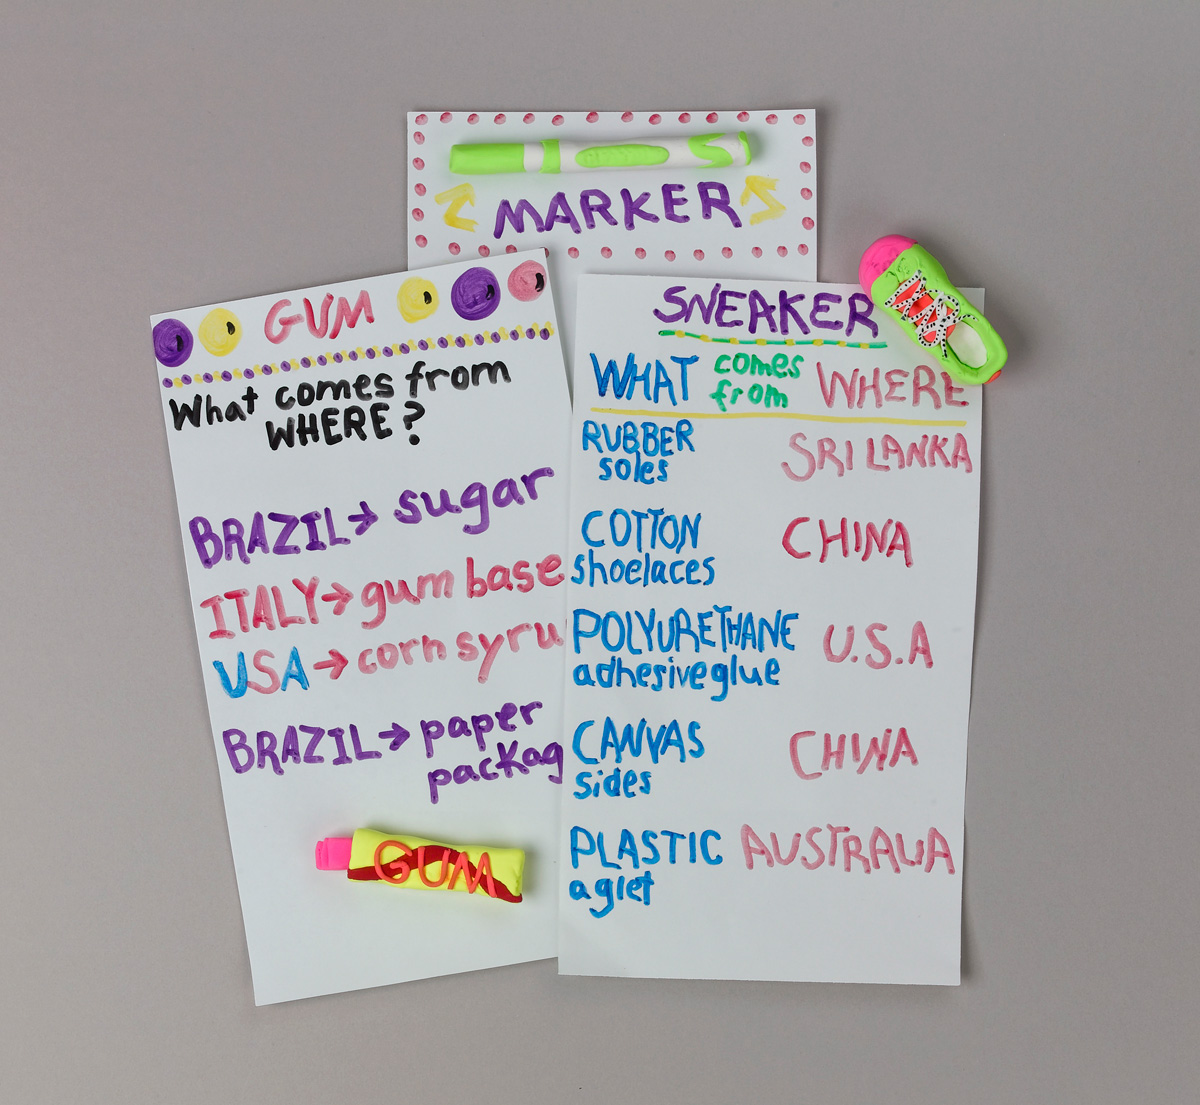 MARKER
GUM
What comes from
WHERE?
BRAZIL → sugar
ITALY → gum base
USA → corn syru
BRAZIL → paper
packag
GUM
SNEAKER
WHAT comes from WHERE
RUBBER soles SRI LANKA
COTTON shoelaces CHINA
POLYURETHANE adhesive glue U.S.A
CANVAS sides CHINA
PLASTIC aglet AUSTRALIA